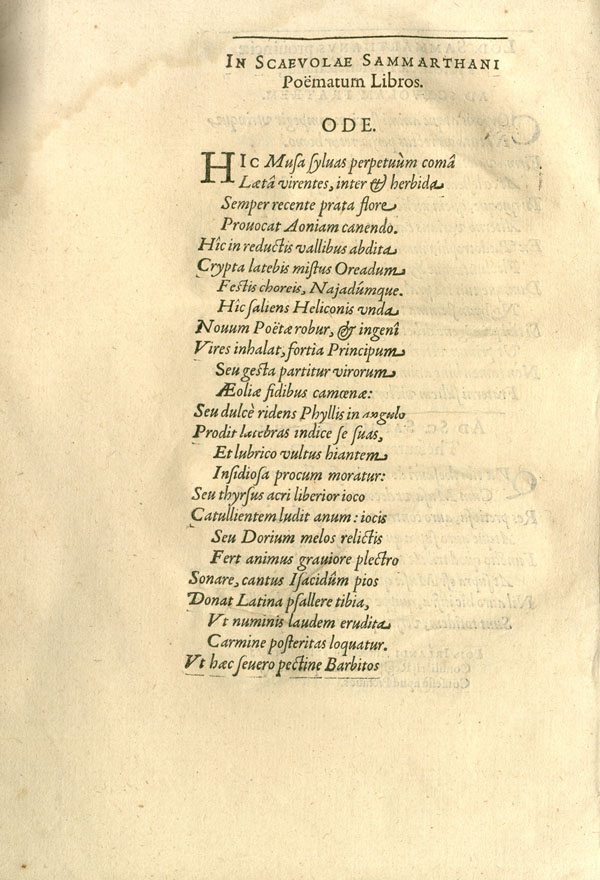 IN SCAEVOLAE SAMMARTHANI
Poëmatum Libros.
ODE.
HIC Muſa ſyluas perpetuùm comâ
Lætâ virentes, inter & herbida
Semper recente prata flore
Prouocat Aoniam canendo.
Hîc in reductis vallibus abdita
Crypta latebis miſtus Oreadum
Feſtis choreis, Najadúmque.
Hic ſaliens Heliconis vnda
Nouum Poëtæ robur, & ingenî
Vires inhalat, fortia Principum
Seu geſta partitur virorum
Æoliæ fidibus camœnæ:
Seu dulcè ridens Phyllis in angulo
Prodit latebras indice ſe ſuas,
Et lubrico vultus hiantem
Inſidioſa procum moratur:
Seu thyrſus acri liberior ioco
Catullientem ludit anum: iocis
Seu Dorium melos relictis
Fert animus grauiore plectro
Sonare, cantus Iſacidûm pios
Donat Latina pſallere tibia,
Vt numinis laudem erudita
Carmine poſteritas loquatur.
Vt hæc ſeuero pectine Barbitos